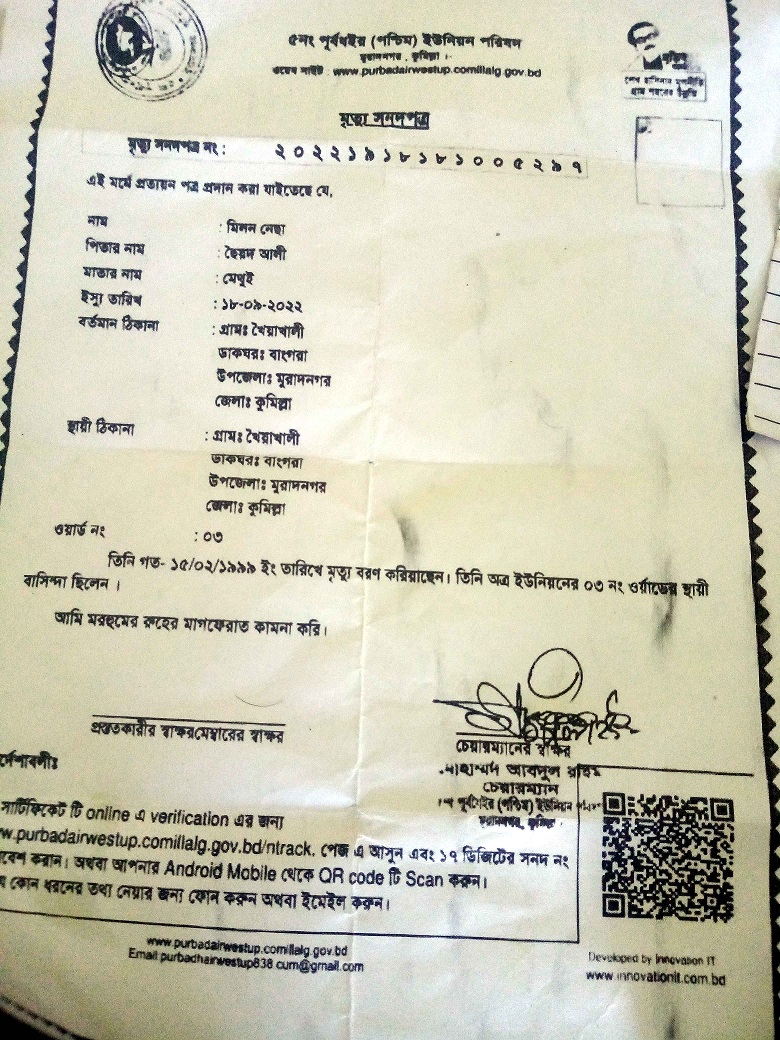 ৫নং পূর্বধইর (পশ্চিম) ইউনিয়ন পরিষদ
মুরাদনগর, কুমিল্লা ।
ওয়েব সাইট : www.purbadairwestup.comillalg.gov.bd
শেখ হাসিনার মূলনীতি
গ্রাম শহরের উন্নতি
মৃত্যু সনদপত্র
মৃত্যু সনদপত্র নং : ২০২২১৯১৮১৮১০০৫২৯৭
এই মর্মে প্রত্যয়ন পত্র প্রদান করা যাইতেছে যে,
নাম : মিলন নেছা
পিতার নাম : ছৈয়দ আলী
মাতার নাম : মেথুই
ইস্যু তারিখ : ১৮-০৯-২০২২
বর্তমান ঠিকানা : গ্রামঃ খৈয়াখালী
ডাকঘরঃ বাংগরা
উপজেলাঃ মুরাদনগর
জেলাঃ কুমিল্লা
স্থায়ী ঠিকানা : গ্রামঃ খৈয়াখালী
ডাকঘরঃ বাংগরা
উপজেলাঃ মুরাদনগর
জেলাঃ কুমিল্লা
ওয়ার্ড নং : ০৩
তিনি গত- ১৫/০২/১৯৯৯ ইং তারিখে মৃত্যু বরণ করিয়াছেন। তিনি অত্র ইউনিয়নের ০৩ নং ওর্য়াডের স্থায়ী
বাসিন্দা ছিলেন ।
আমি মরহুমের রুহের মাগফেরাত কামনা করি।
প্রস্তুতকারীর স্বাক্ষরমেম্বারের স্বাক্ষর
চেয়ারম্যানের স্বাক্ষর
মোহাম্মদ আবদুল রহিম
চেয়ারম্যান
পূর্বধইর (পশ্চিম) ইউনিয়ন
মুরাদনগর, কুমিল্লা ।
র্দেশাবলীঃ
সার্টিফিকেট টি online এ verification এর জন্য
w.purbadairwestup.comillalg.gov.bd/ntrack. পেজ এ আসুন এবং ১৭ ডিজিটের সনদ নং
বেশ করান। অথবা আপনার Android Mobile থেকে QR code টি Scan করুন।
কোন ধরনের তথ্য নেয়ার জন্য ফোন করুন অথবা ইমেইল করুন।
www.purbadairwestup.comillalg.gov.bd
Email purbadhairwestup838.cum@gmail.com
Developed by Innovation IT
www.innovationit.com.bd